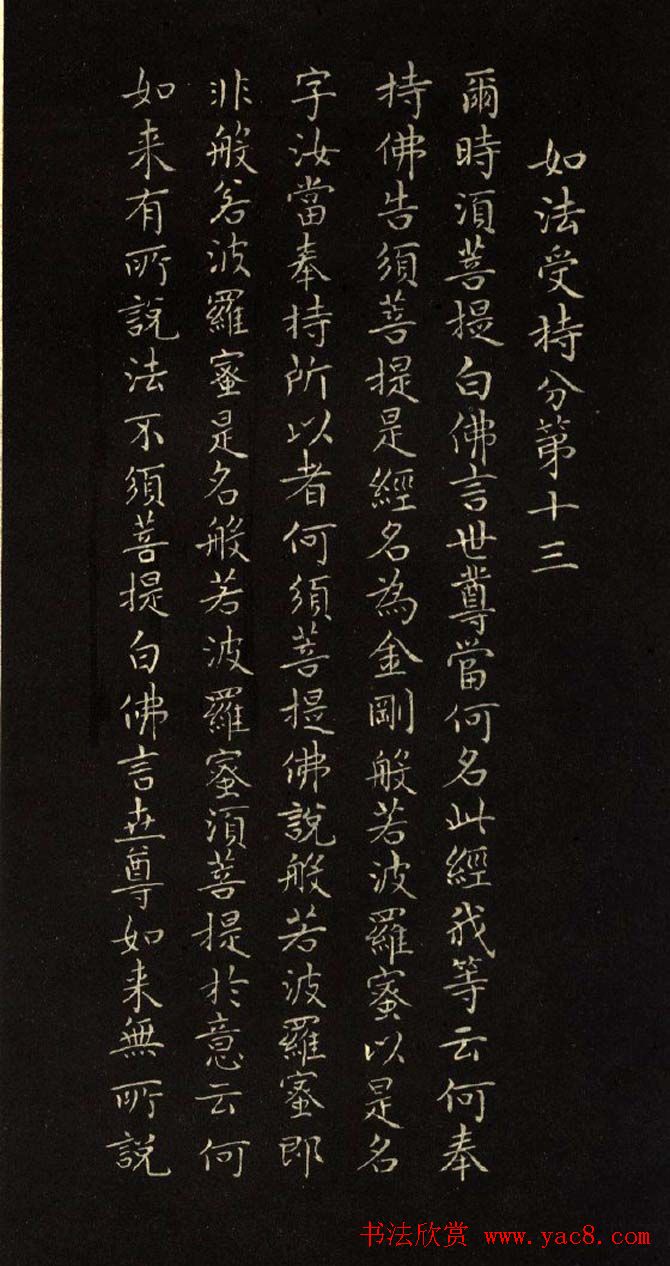 如法受持分第十三
爾時須菩提白佛言世尊當何名此經我等云何奉
持佛告須菩提是經名為金剛般若波羅蜜以是名
字汝當奉持所以者何須菩提佛說般若波羅蜜即
非般若波羅蜜是名般若波羅蜜須菩提於意云何
如来有所說法不須菩提白佛言世尊如来無所說
书法欣赏 www.yac8.com